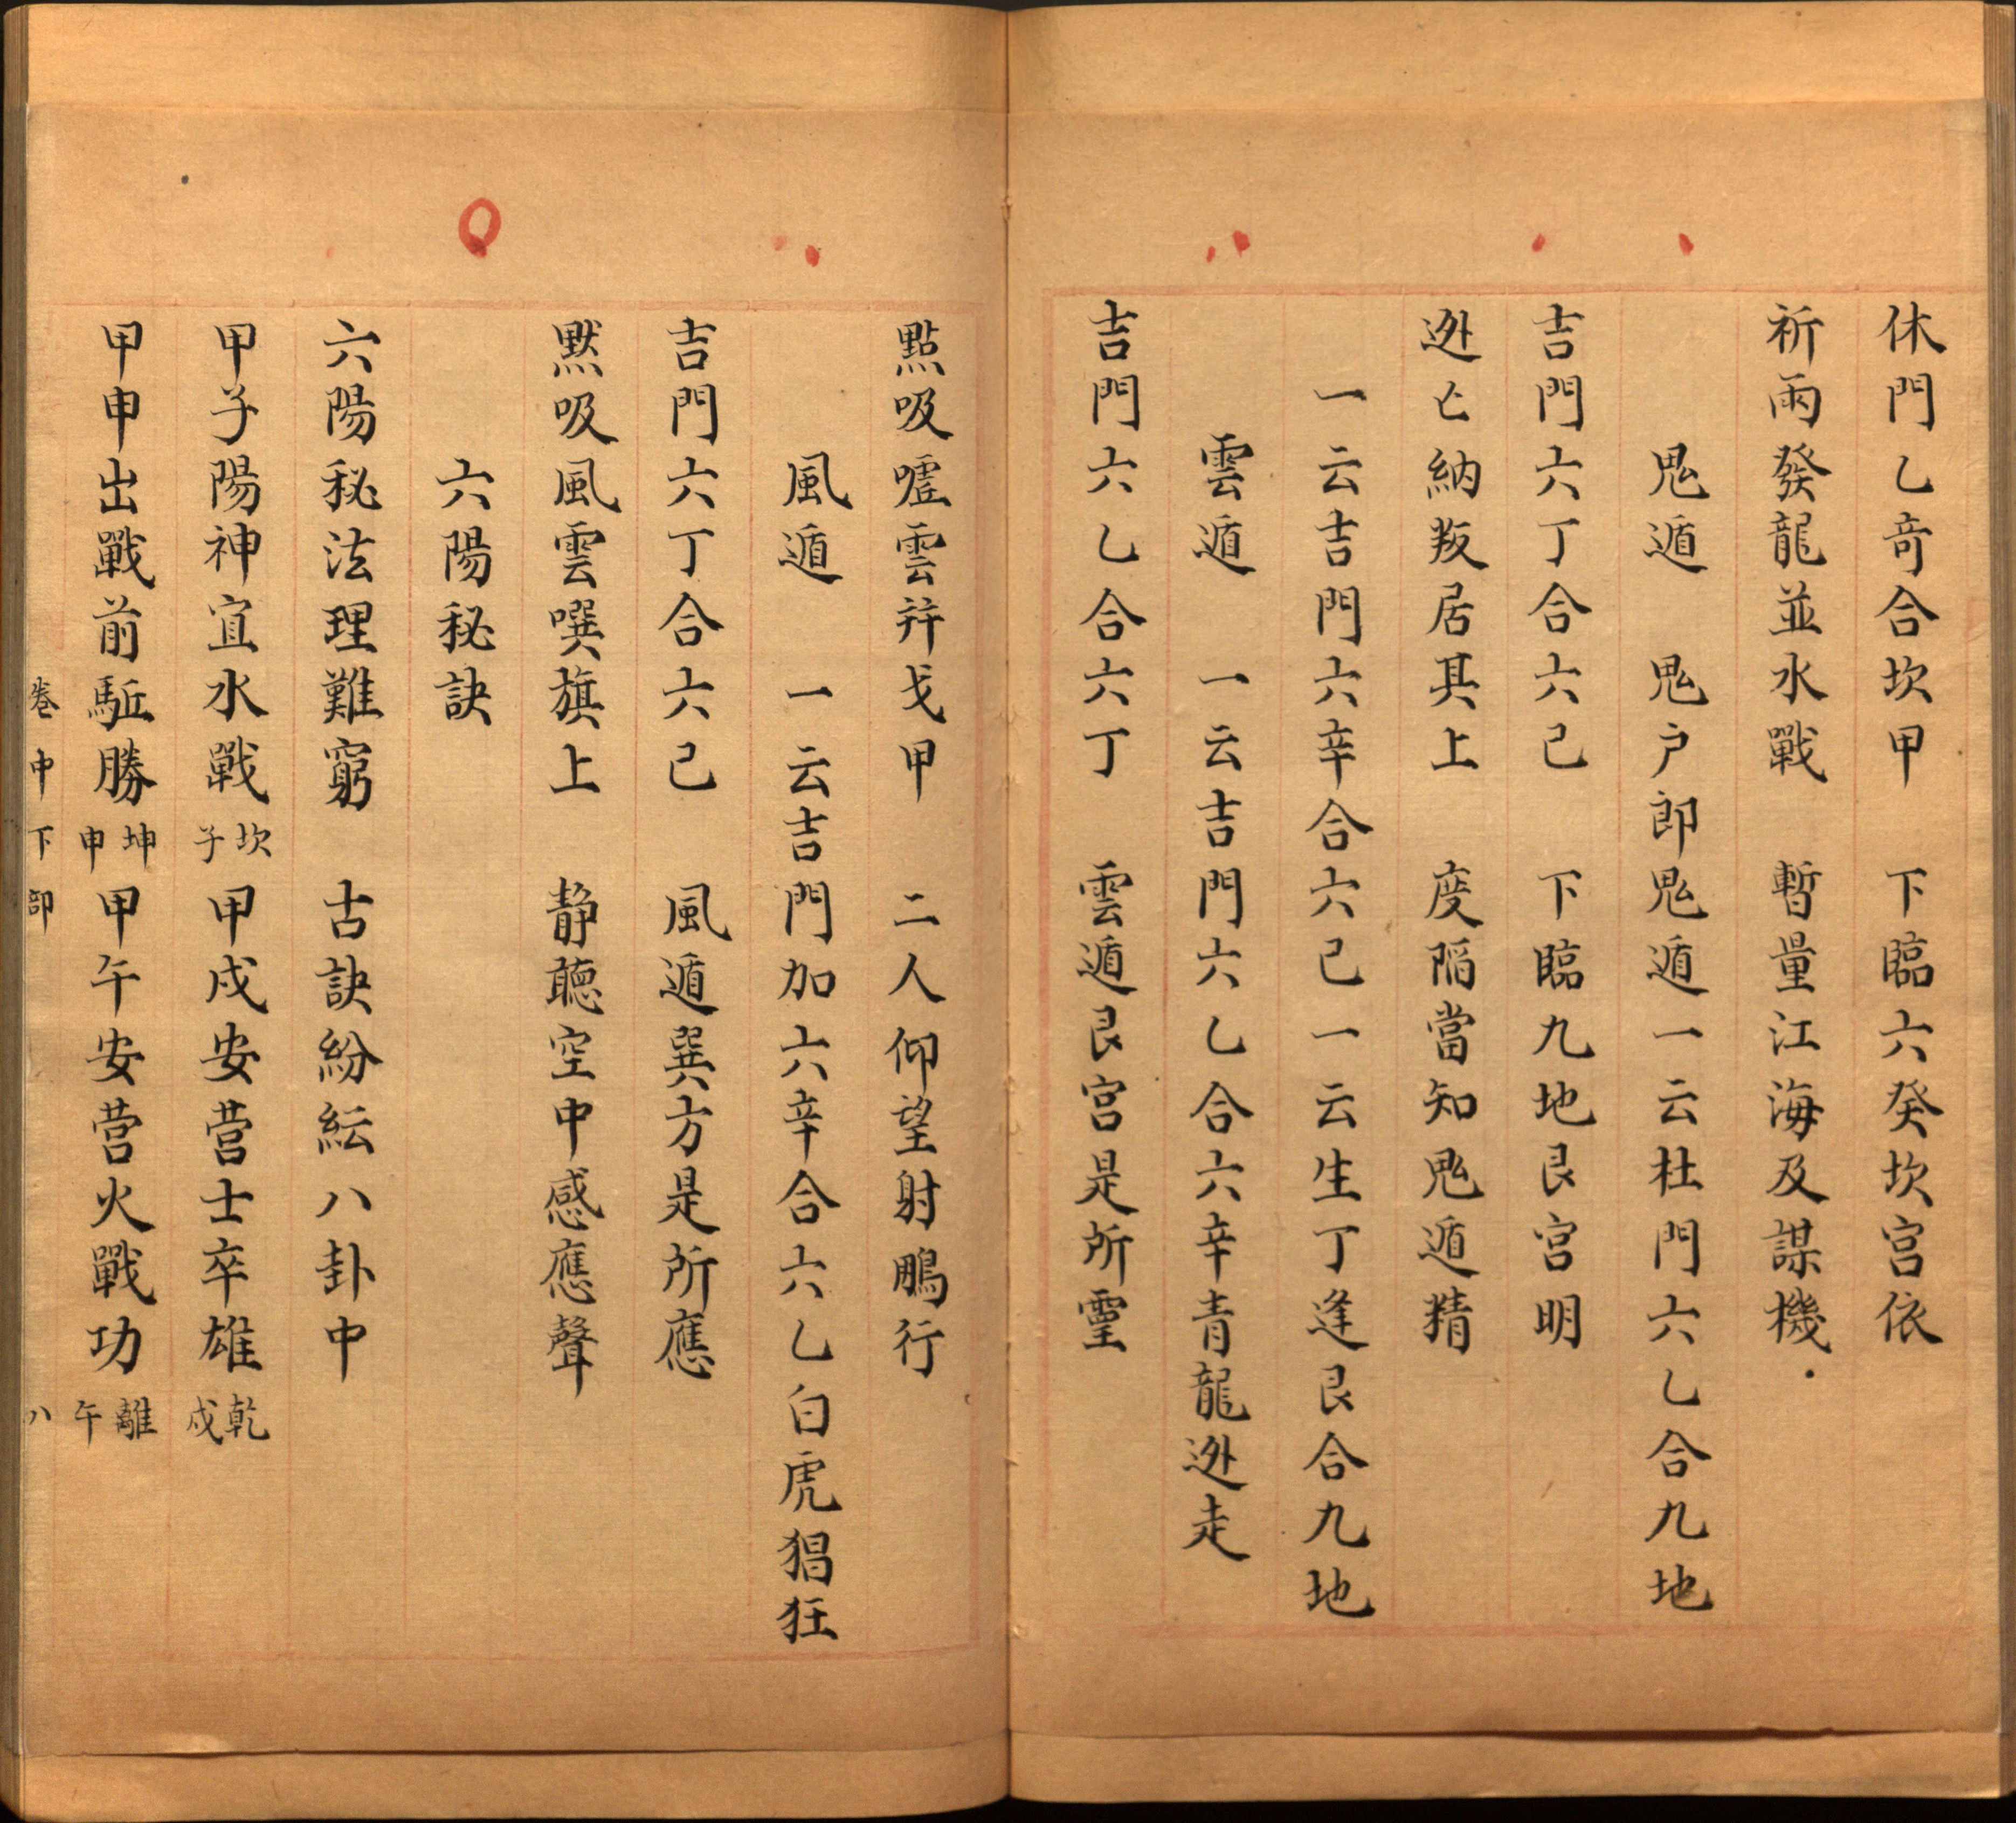 休門乙奇合坎甲　下臨六癸坎宫依
祈雨發龍並水戰　暫量江海及謀機
鬼遁　鬼户郎鬼遁一云杜門六乙合九地
吉門六丁合六己　下臨九地艮宫明
迯亡納叛居其上　度陷當知鬼遁精
一云吉門六辛合六己一云生丁逢艮合九地
雲遁　一云吉門六乙合六辛青龍迯走
吉門六乙合六丁　雲遁艮宫是所霊
㸃吸嘘雲并戈甲　二人仰望射鵰行
風遁　一云吉門加六辛合六乙白虎猖狂
吉門六丁合六己　風遁巽方是所應
黙吸風雲噀旗上　静聴空中感應聲
六陽秘訣
六陽秘法理難窮　古訣紛紜八卦中
甲子陽神宜水戰坎子甲戌安营士卒雄乾戌
甲申出戰前駈勝坤申甲午安营火戰功離午
卷中下部　八